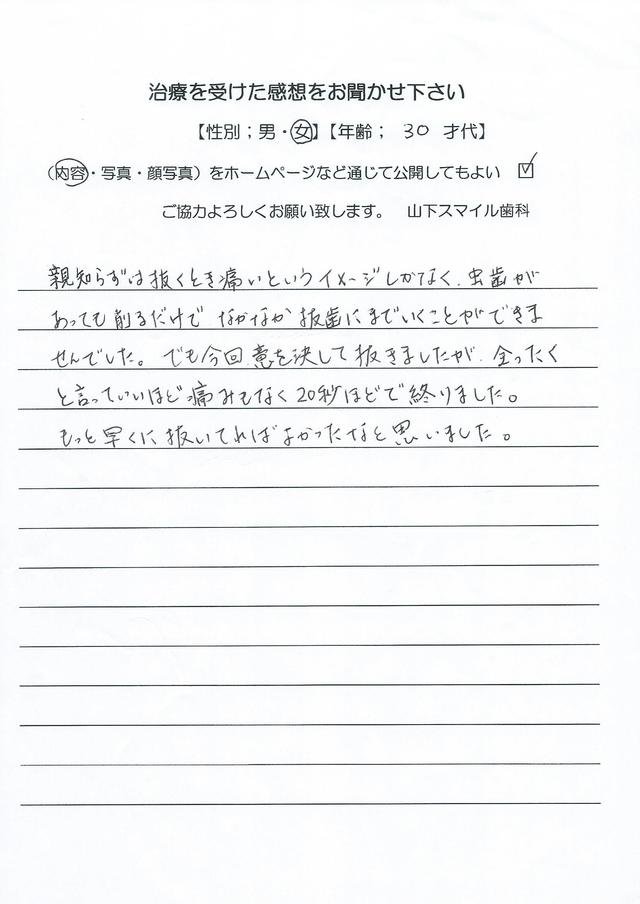 治療を受けた感想をお聞かせ下さい
【性別；男・女】【年齢； 30 才代】
（内容・写真・顔写真）をホームページなど通じて公開してもよい ☑
ご協力よろしくお願い致します。 山下スマイル歯科
親知らずは抜くとき痛いというイメージしかなく、虫歯が
あっても削るだけで なかなか抜歯にまでいくことができま
せんでした。でも今回、意を決して抜きましたが、全ったく
と言っていいほど痛みもなく20秒ほどで終りました。
もっと早くに抜いてればよかったなと思いました。